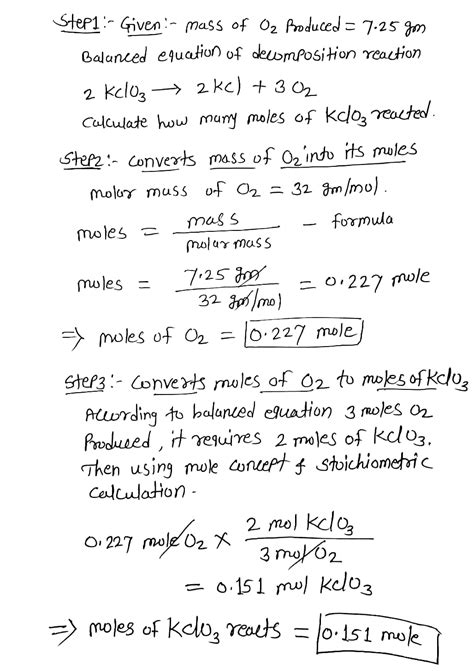 Step1:- Given:- mass of O2 Produced = 7.25 gm
Balanced equation of decomposition reaction
2 KClO3 → 2 KCl + 3 O2
Calculate how many moles of KClO3 reacted.
Step2:- Converts mass of O2 into its moles
molar mass of O2 = 32 gm/mol.
moles = mass / molar mass - formula
moles = 7.25 gm / 32 gm/mol = 0.227 mole
⇒ moles of O2 = 0.227 mole
Step3:- Converts moles of O2 to moles of KClO3
According to balanced equation 3 moles O2
Produced, it requires 2 moles of KClO3.
Then using mole concept & stoichiometric
calculation -
0.227 mole O2 × 2 mol KClO3 / 3 mol O2
= 0.151 mol KClO3
⇒ moles of KClO3 reacts = 0.151 mole